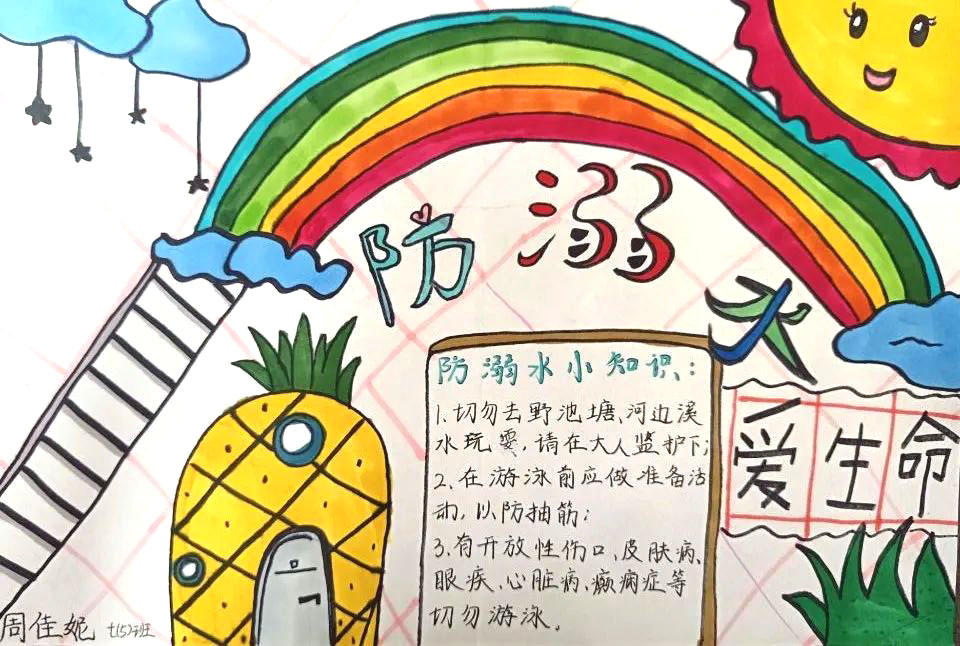 防溺水
防溺水小知识:
1.切勿去野池塘、河边溪
水玩耍,请在大人监护下;
2、在游泳前应做准备活
动,以防抽筋;
3、有开放性伤口、皮肤病、
眼疾、心脏病、癫痫症等
切勿游泳。
爱生命
周佳妮 七(5)班